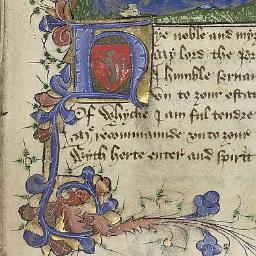 Hye noble and my
lord the
humble servan
to your estat
Of whyche I am ful tendre
recommaunde onto your
Wyth herte enter and spirit